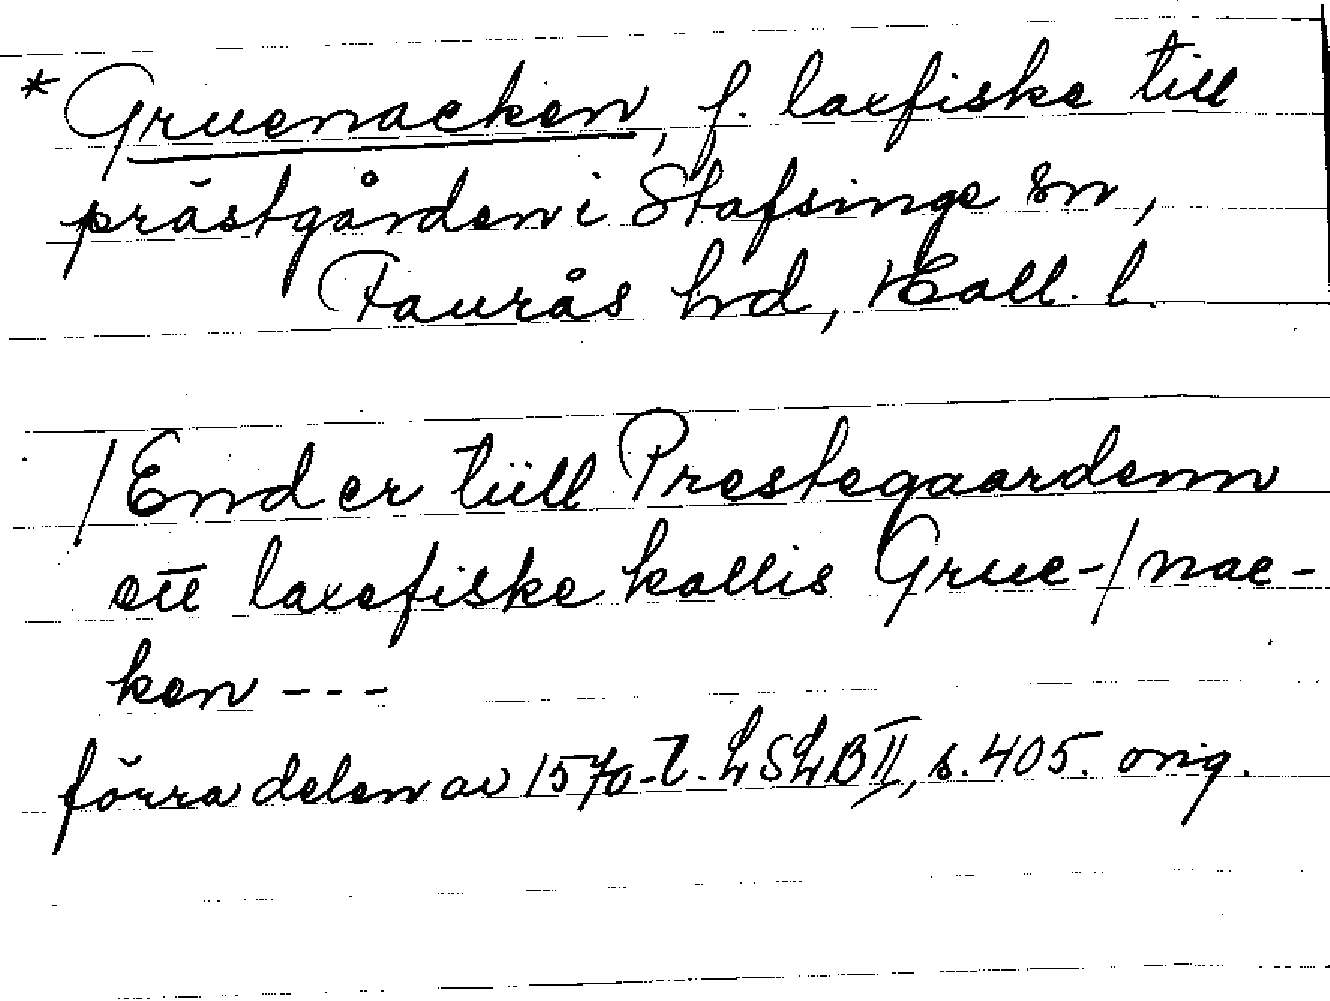 * Gruenacken, f. laxfiske till
prästgården i Stafsinge sn,
Faurås hd, Hall. l.
/End er tüll Prestegaardenn
ett laxefiske kallis Grue-/nac-
ken ---
förra delen av 1570-t. LSLB II, s. 405. orig.